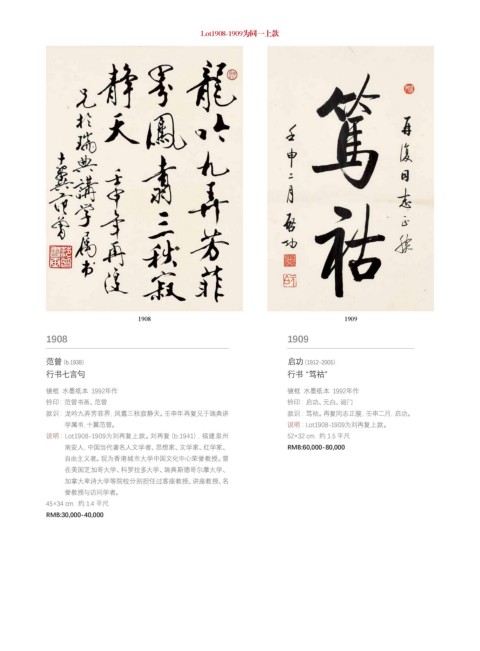 Lot1908-1909为同一上款
龍吟九弄芳菲
界鳳翥三秋寂
靜天 壬申年再復
兄於瑞典講學屬书
十翼范曾
再復同志正腕
篤祜
壬申二月 啟功
1908
1909
1908
范曾 (b.1938)
行书七言句
镜框 水墨纸本 1992年作
钤印：范曾书画、范曾
款识：龙吟九弄芳菲界，凤翥三秋寂静天。壬申年再复兄于瑞典讲
学属书，十翼范曾。
说明：Lot1908-1909为刘再复上款。刘再复 (b.1941)，福建泉州
南安人，中国当代著名人文学者、思想家、文学家、红学家、
自由主义者。现为香港城市大学中国文化中心荣誉教授。曾
在美国芝加哥大学、科罗拉多大学、瑞典斯德哥尔摩大学、
加拿大卑诗大学等院校分别担任过客座教授、讲座教授、名
誉教授与访问学者。
45×34 cm 约 1.4 平尺
RMB:30,000-40,000
1909
启功 (1912-2005)
行书 “笃祜”
镜框 水墨纸本 1992年作
钤印：启功、元白、
款识：笃祜。再复同志正腕，壬申二月，启功。
说明：Lot1908-1909为刘再复上款。
52×32 cm 约 1.5 平尺
RMB:60,000-80,000